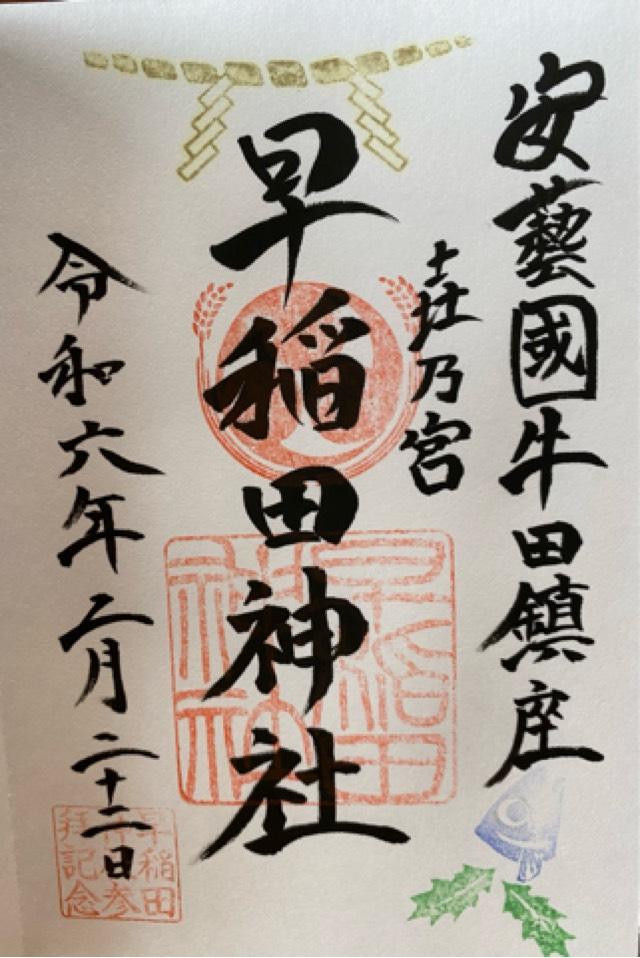 安藝國牛田鎮座
乃宮
早稲田神社
令和六年二月二十二日
早稲田
神社
早稲田
神社参
拝記念